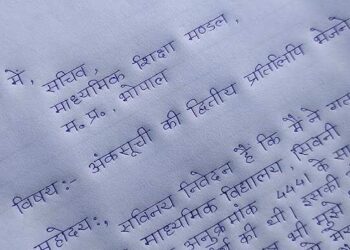 में, सचिव,
माध्यमिक शिक्षा मण्डल,
म. प्र., भोपाल
विषय:- अंकसूची की द्वितीय प्रतिलिपि भेजने
महोदय:, सविनय निवेदन है कि मैं ने गत
माध्यमिक विद्यालय, सिवनी
अनुक्रमांक 4441 के सा
की थी। इसकी
भी मुझे